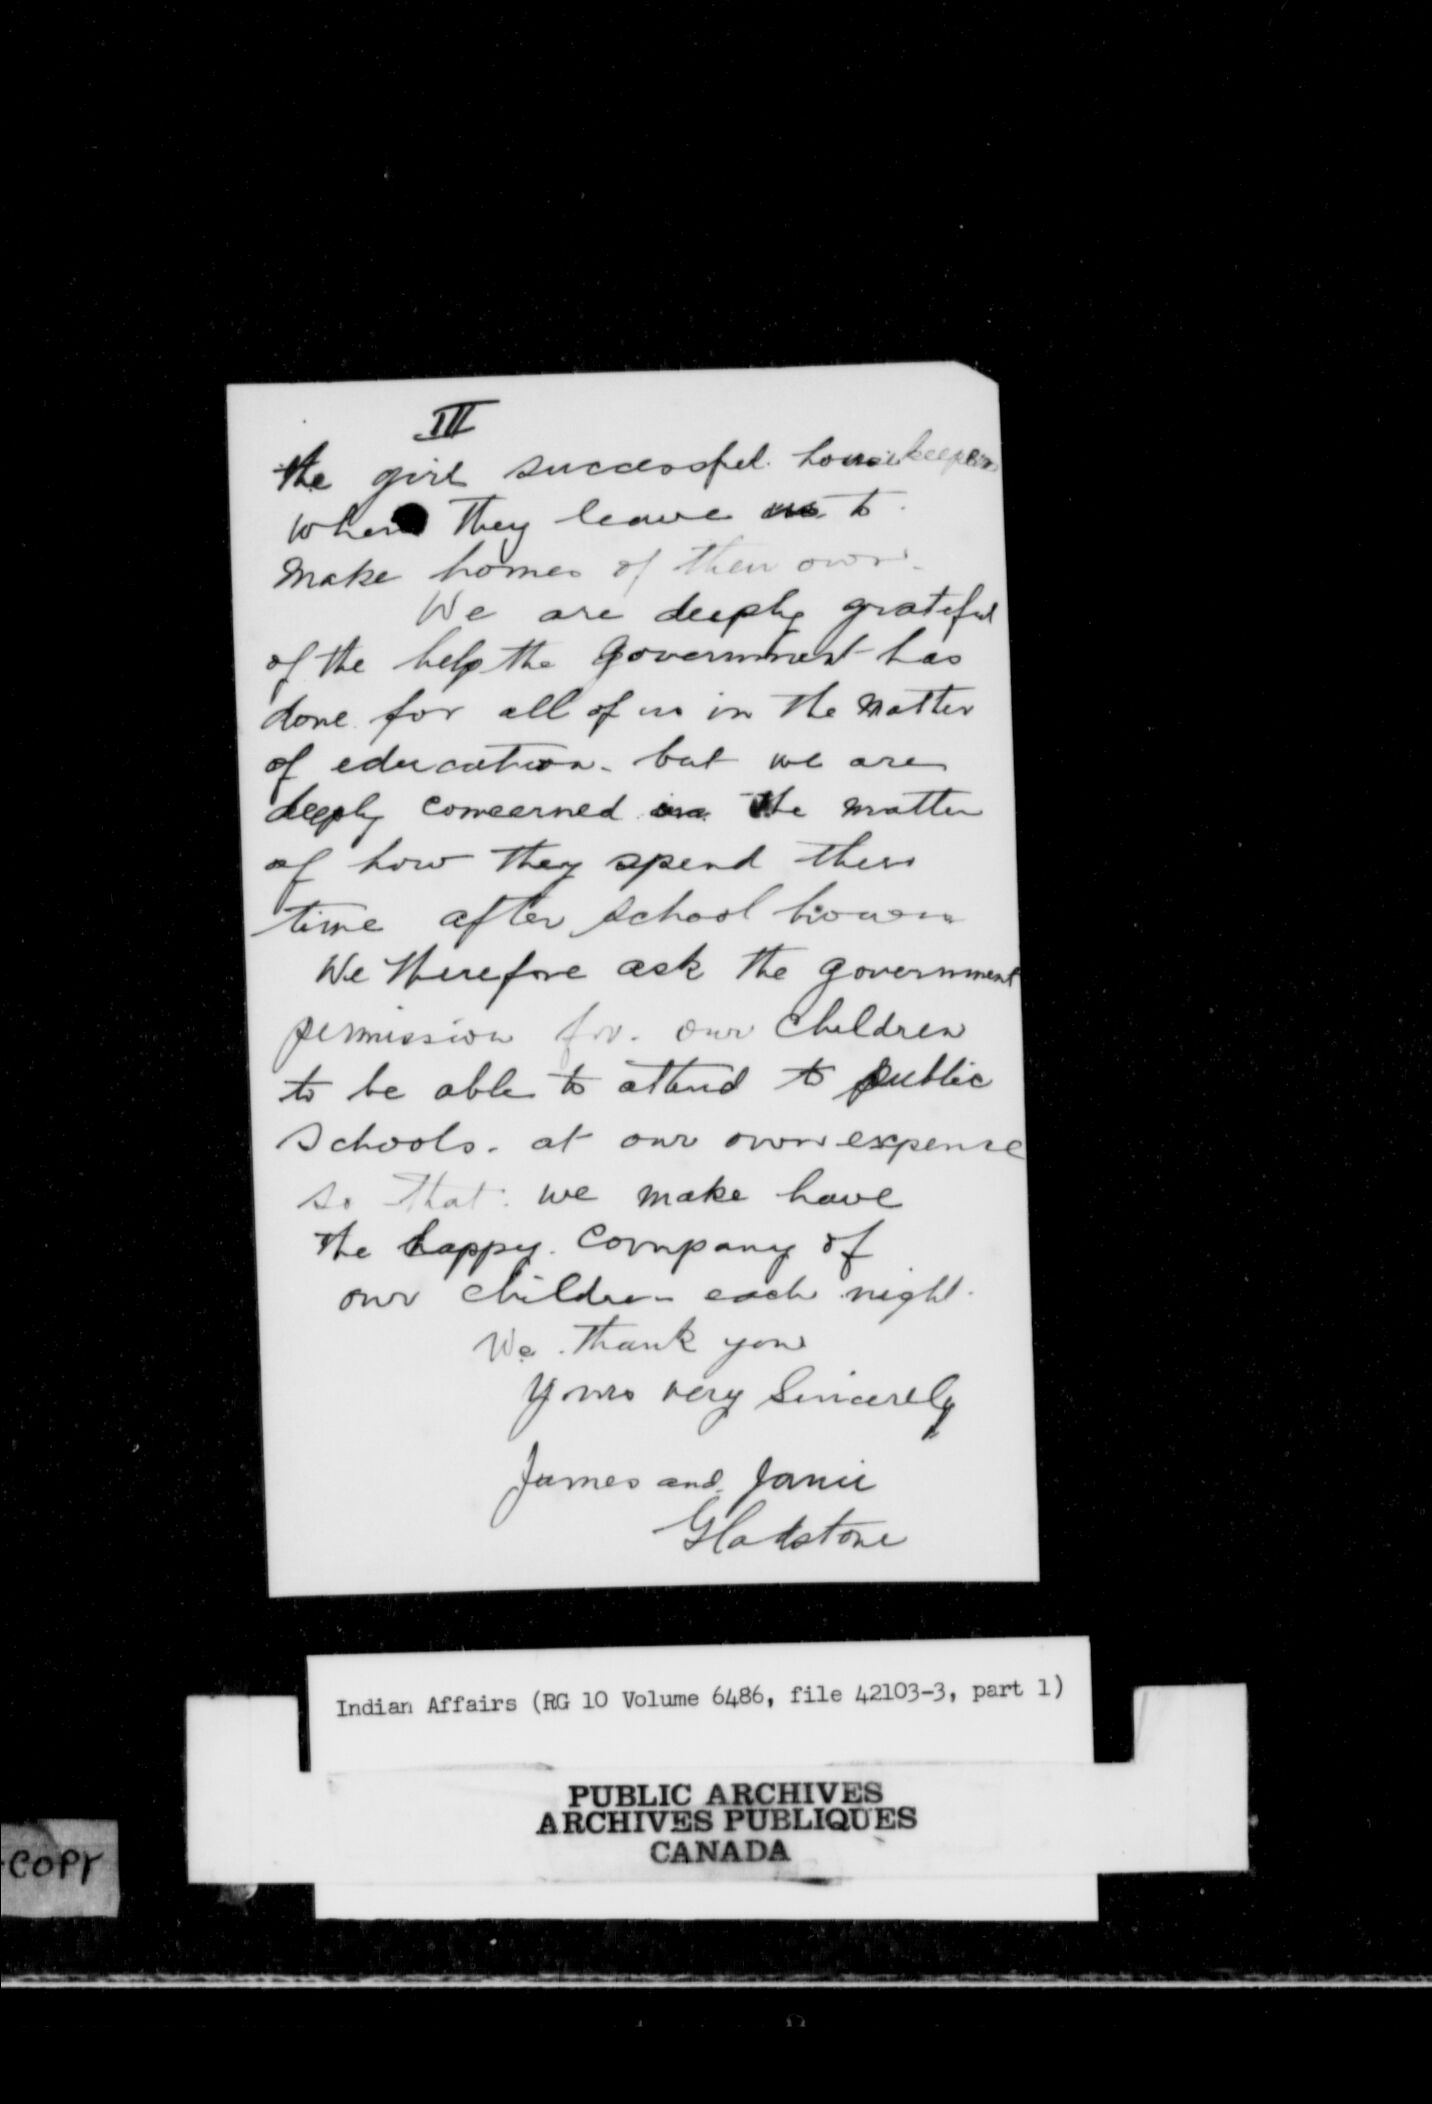 III
the girls successful housekeepers
when they leave us to
make homes of their own.
We are deeply grateful
of the help the government has
done for all of us in the matter
of education. but we are
deeply concerned in the matter
of how they spend their
time after school hours
We therefore ask the government
permission for our children
to be able to attend to public
schools. at our own expense
so that we make have
the happy company of
our children each night.
We thank you
Yours very sincerely
James and Janie
Gladstone
Indian Affairs (RG 10 Volume 6486, file 42103-3, part 1)
PUBLIC ARCHIVES
ARCHIVES PUBLIQUES
CANADA
COPY